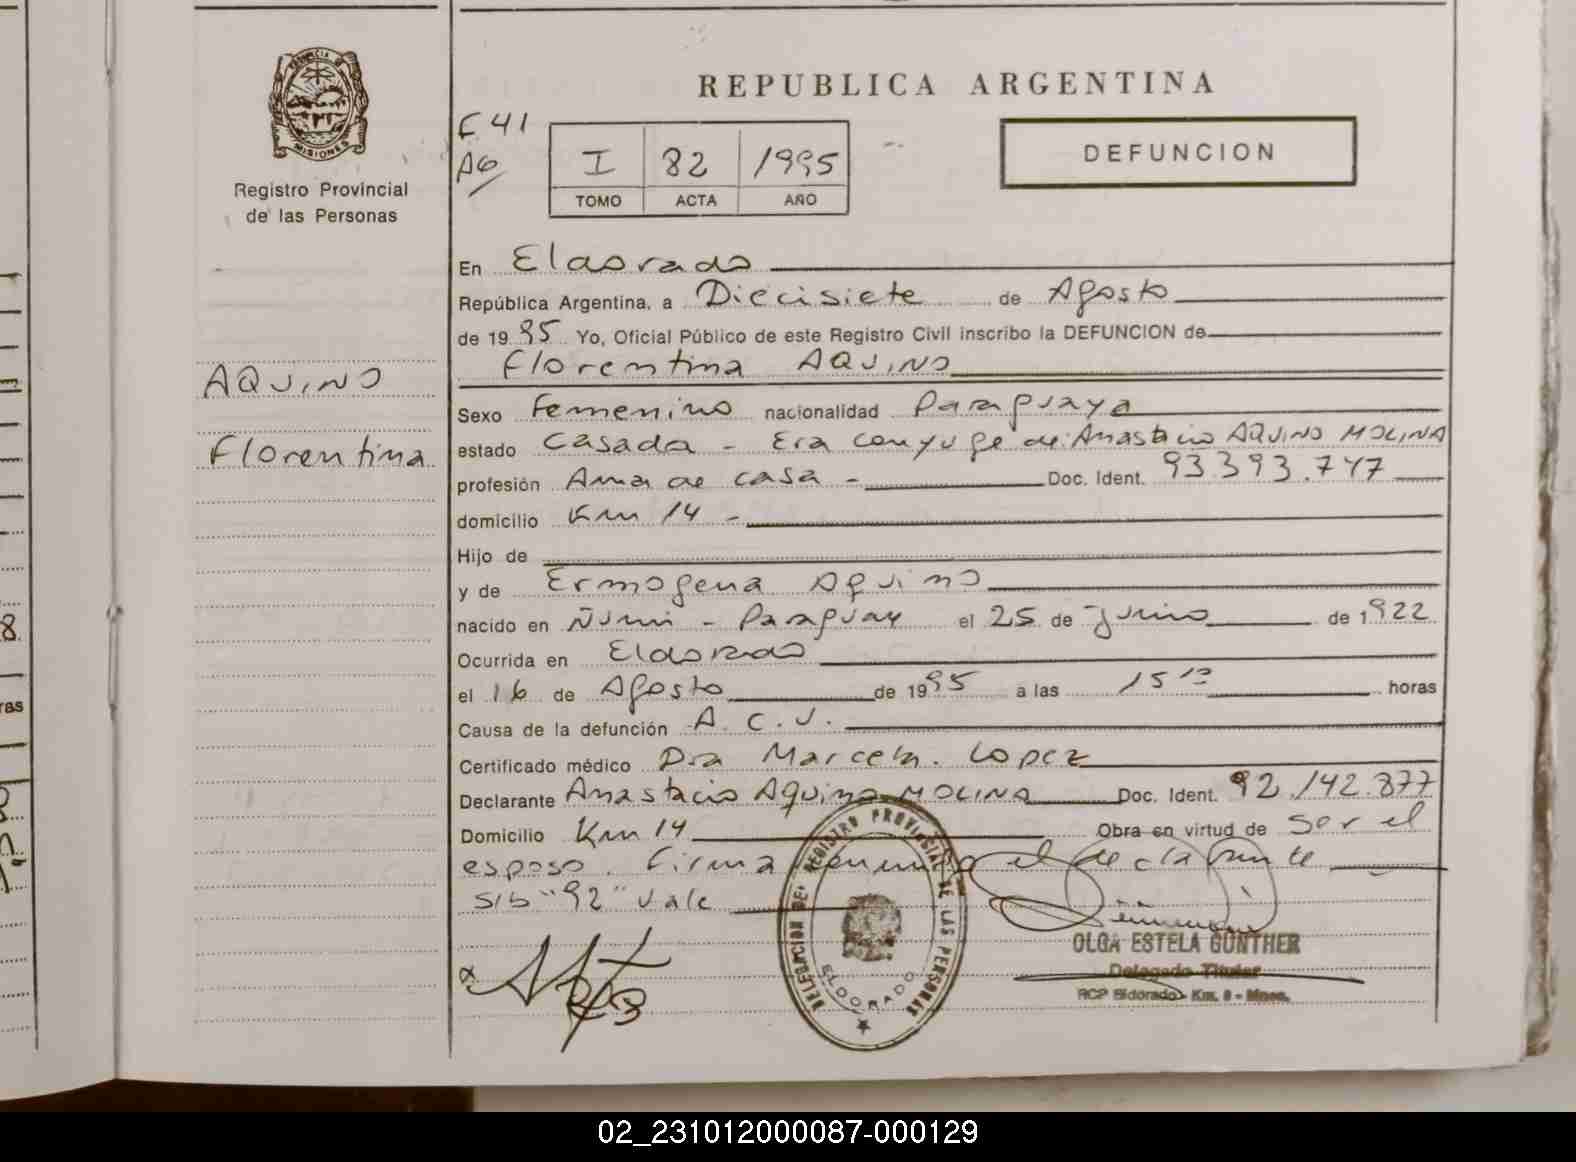 PROVINCIA DE
MISIONES
Registro Provincial
de las Personas
AQUINO
Florentina
REPUBLICA ARGENTINA
F 41
A6
I 82 1995
TOMO ACTA AÑO
DEFUNCION
En Eldorado
República Argentina, a Diecisiete de Agosto
de 1995 Yo, Oficial Público de este Registro Civil inscribo la DEFUNCION de
Florentina AQUINO
Sexo Femenino nacionalidad Paraguaya
estado Casada - Era conyuge de: Anastacio AQUINO MOLINA
profesión Ama de casa - Doc. Ident. 93.393.747
domicilio Km 14 -
Hijo de
y de Ermogena Aquino
nacido en Ñumi - Paraguay el 25 de Junio de 1922
Ocurrida en Eldorado
el 16 de Agosto de 1995 a las 15 10 horas
Causa de la defunción A. C. V.
Certificado médico Dra Marcela. Lopez
Declarante Anastacio Aquino MOLINA Doc. Ident. 92.142.877
Domicilio Km 14 Obra en virtud de Ser el
esposo. Firma el declarante
S/b "92" Vale
DELEGACION DEL REGISTRO PROVINCIAL DE LAS PERSONAS
ELDORADO
OLGA ESTELA GUNTHER
Delegado Titular
RCP Eldorado - Km. 9 - Mnes.
8
ras
02_231012000087-000129